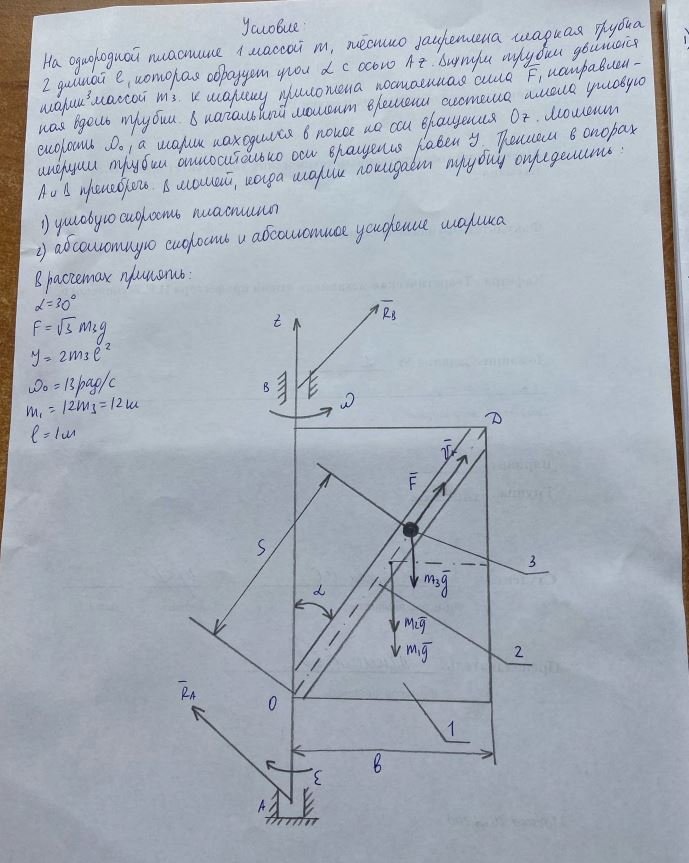 Условие:
На однородной пластине 1 массой m, жёстко закреплена гладкая трубка
2 длиной ℓ, которая образует угол α с осью Az. Внутри трубки движется
шарик 3 массой m3. К шарику приложена постоянная сила F̄, направлен-
ная вдоль трубки. В начальный момент времени система имела угловую
скорость ω₀, а шарик находился в покое на оси вращения Oz. Момент
инерции трубки относительно оси вращения равен Y. Трением в опорах
A и B пренебречь. В момент, когда шарик покидает трубку определить:
1) угловую скорость пластины
2) абсолютную скорость и абсолютное ускорение шарика
В расчетах принять:
α=30°
F = √3 m3g
Y = 2m3ℓ²
ω₀ = 13 рад/с
m₁ = 12m3 = 12
ℓ = 1м
z
R̄B
B
ω
D
V̄r
F̄
S
3
m3ḡ
α
m2ḡ
2
m1ḡ
R̄A
O
1
в
ε
A